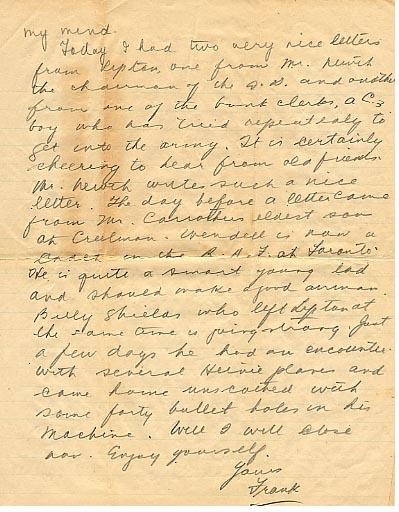 my mind.
Today I had two very nice letters
from Lipton, one from Mr. Newth
the chairman of the S. D. and another
from one of the bank clerks, a C3
boy who has tried repeatedly to
get into the army. It is certainly
cheering to hear from old friends.
Mr. Newth writes such a nice
letter. The day before a letter came
from Mr. Carrothers eldest son
at Creelman. Wendell is now a
cadet in the R. A. F. at Toronto.
He is quite a smart young lad
and should make a good airman.
Billy Shields who left Lipton at
the same time is going strong. Just
a few days he had an encounter
with several Heinie planes and
came home unscathed with
some forty bullet holes in his
machine. Well I will close
now. Enjoy yourself.
Yours
Frank